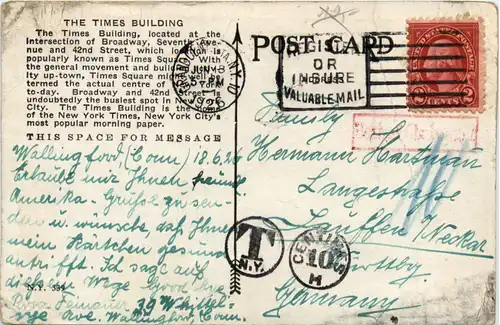 THE TIMES BUILDING
The Times Building, located at the
Intersection of Broadway, Seventh Ave-
nue and 42nd Street, which location is
popularly known as Times Square. With
the general movement and building
ity up-town, Times Square might well be
termed the actual centre of New York
to-day. Broadway and 42nd Street is
undoubtedly the busiest spot in New York
City. The Times Building is the Home
of the New York Times, New York City's
most popular morning paper.
THIS SPACE FOR MESSAGE
POST CARD
REGISTER
OR
INSURE
VALUABLE MAIL
2 CENTS 2
Wallingford, (Conn) 18.6.26
Erlaube mir Ihnen
Amerika-Grüße zu sen-
den u. wünsche, daß Ihnen
mein Kärtchen gesund
antrifft. Ich sage auf
diesem Wege Good bye
Rosa 39 Whittel-
sye Ave. Wallingford, Conn.
N.Y. 359
Family
Hermann Hartman
Langestraße
Lauffen a/Neckar
Württbg.
Germany
T
N.Y.
CENTIMES
10